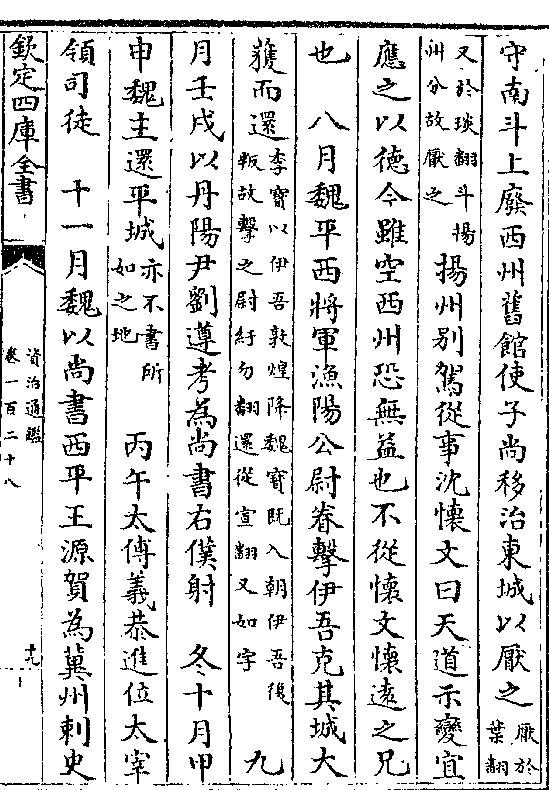 守南斗上廢西州舊館使子尚移治東城以厭之厭於葉翻
又於琰翻斗揚州分故厭之揚州別駕從事沈懷文曰天道示變宜
應之以德今雖空西州恐無益也不從懷文懷遠之兄
也　八月魏平西將軍漁陽公尉眷擊伊吾克其城大
獲而還李寶以伊吾敦煌降魏寶既入朝伊吾復叛故擊之尉紆勿翻還從宣翻又如字　九
月壬戌以丹陽尹劉遵考為尚書右僕射　冬十月甲
申魏主還平城亦不書所如之地　丙午太傅義恭進位太宰
領司徒　十一月魏以尚書西平王源賀為冀州刺史
欽定四庫全書
資治通鑑
卷一百二十八
十九